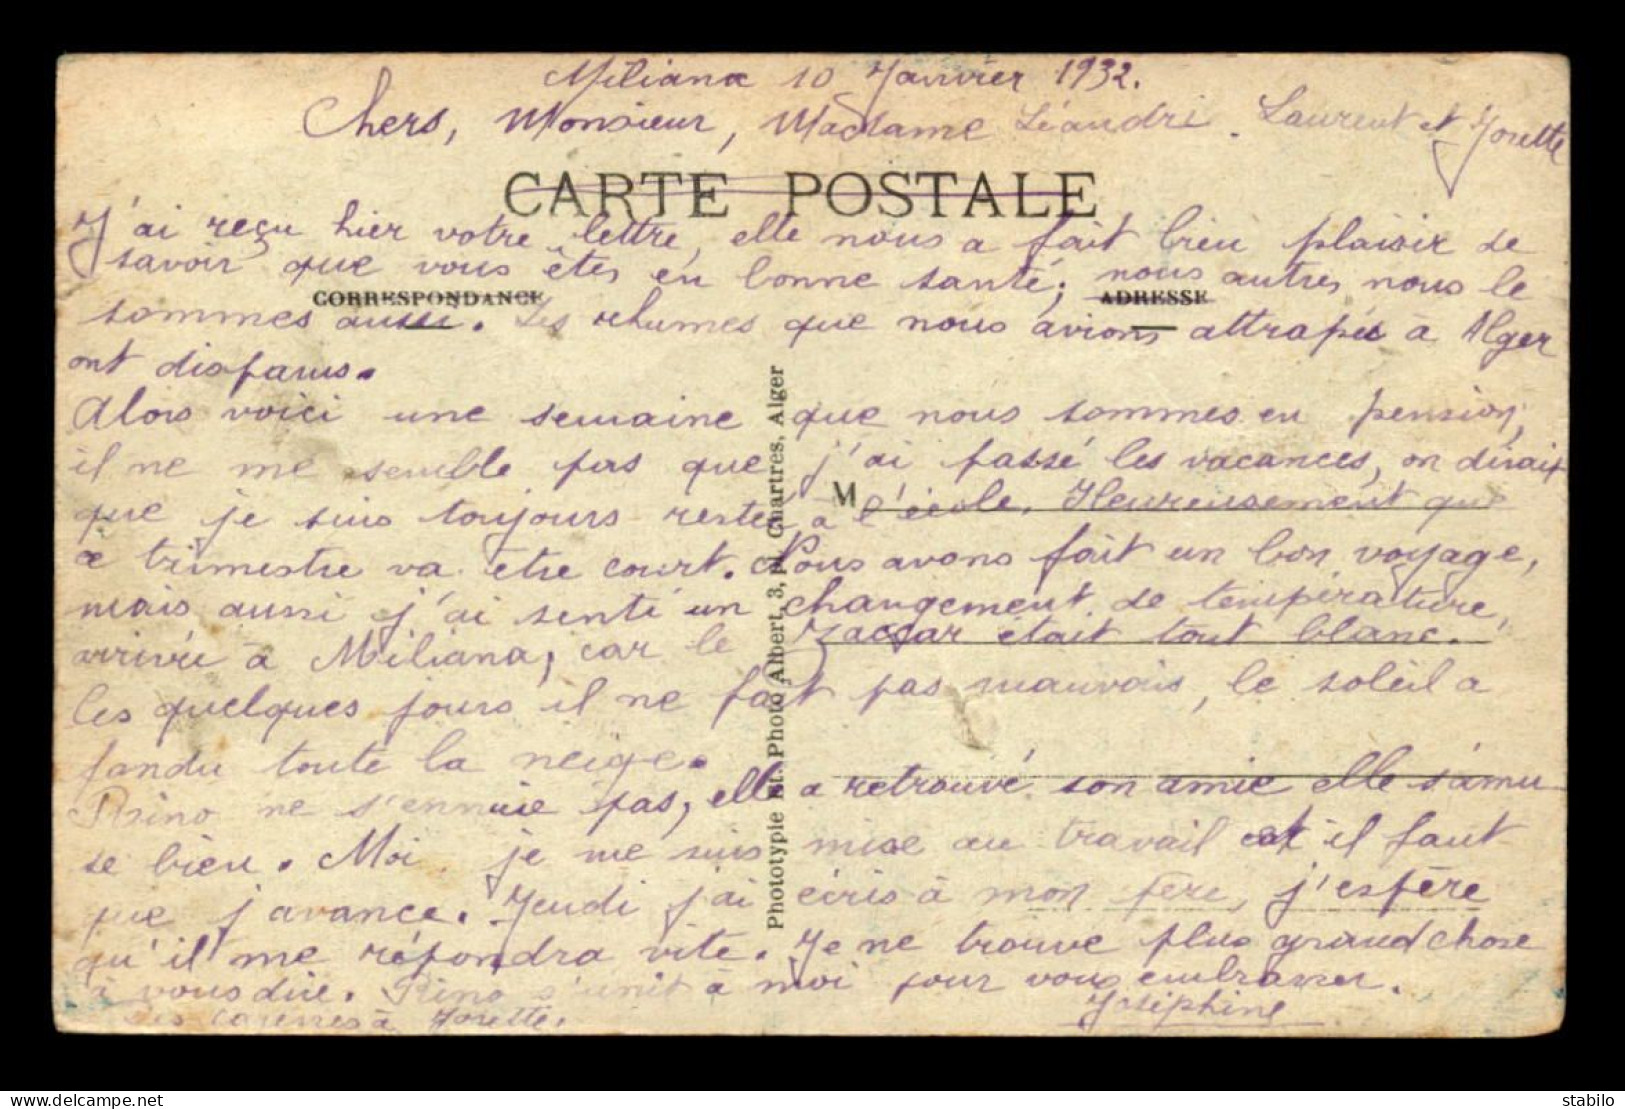 Miliana 10 Janvier 1932.
Chers, Monsieur, Madame Léandri. Laurent et Yorette
CARTE POSTALE
J'ai reçu hier votre lettre, elle nous a fait bien plaisir de
savoir que vous êtes en bonne santé; nous autres nous le
CORRESPONDANCE
ADRESSE
sommes aussi. Les rhumes que nous avions attrapés à Alger
ont disparus.
Alors voici une semaine que nous sommes en pension,
il ne me semble pas que j'ai passé les vacances, on dirait
M
que je suis toujours restée à l'école. Heureusement que
ce trimestre va être court. Nous avons fait un bon voyage,
mais aussi j'ai senti un changement de température,
arrivée à Miliana, car le Zaccar était tout blanc.
les quelques jours il ne fait pas mauvais, le soleil a
fondu toute la neige.
Rino ne s'ennuie pas, elle a retrouvé son amie elle s'amu
se bien. Moi je me suis mise au travail et il faut
que j'avance. Jeudi j'ai écris à mon père, j'espère
qu'il me répondra vite. Je ne trouve plus grand chose
à vous dire. Rino s'unit à moi pour vous embrasser.
caresses à Yorette.
Joséphine
Phototypie Photo Albert, 3, pl. Chartres, Alger
stabilo